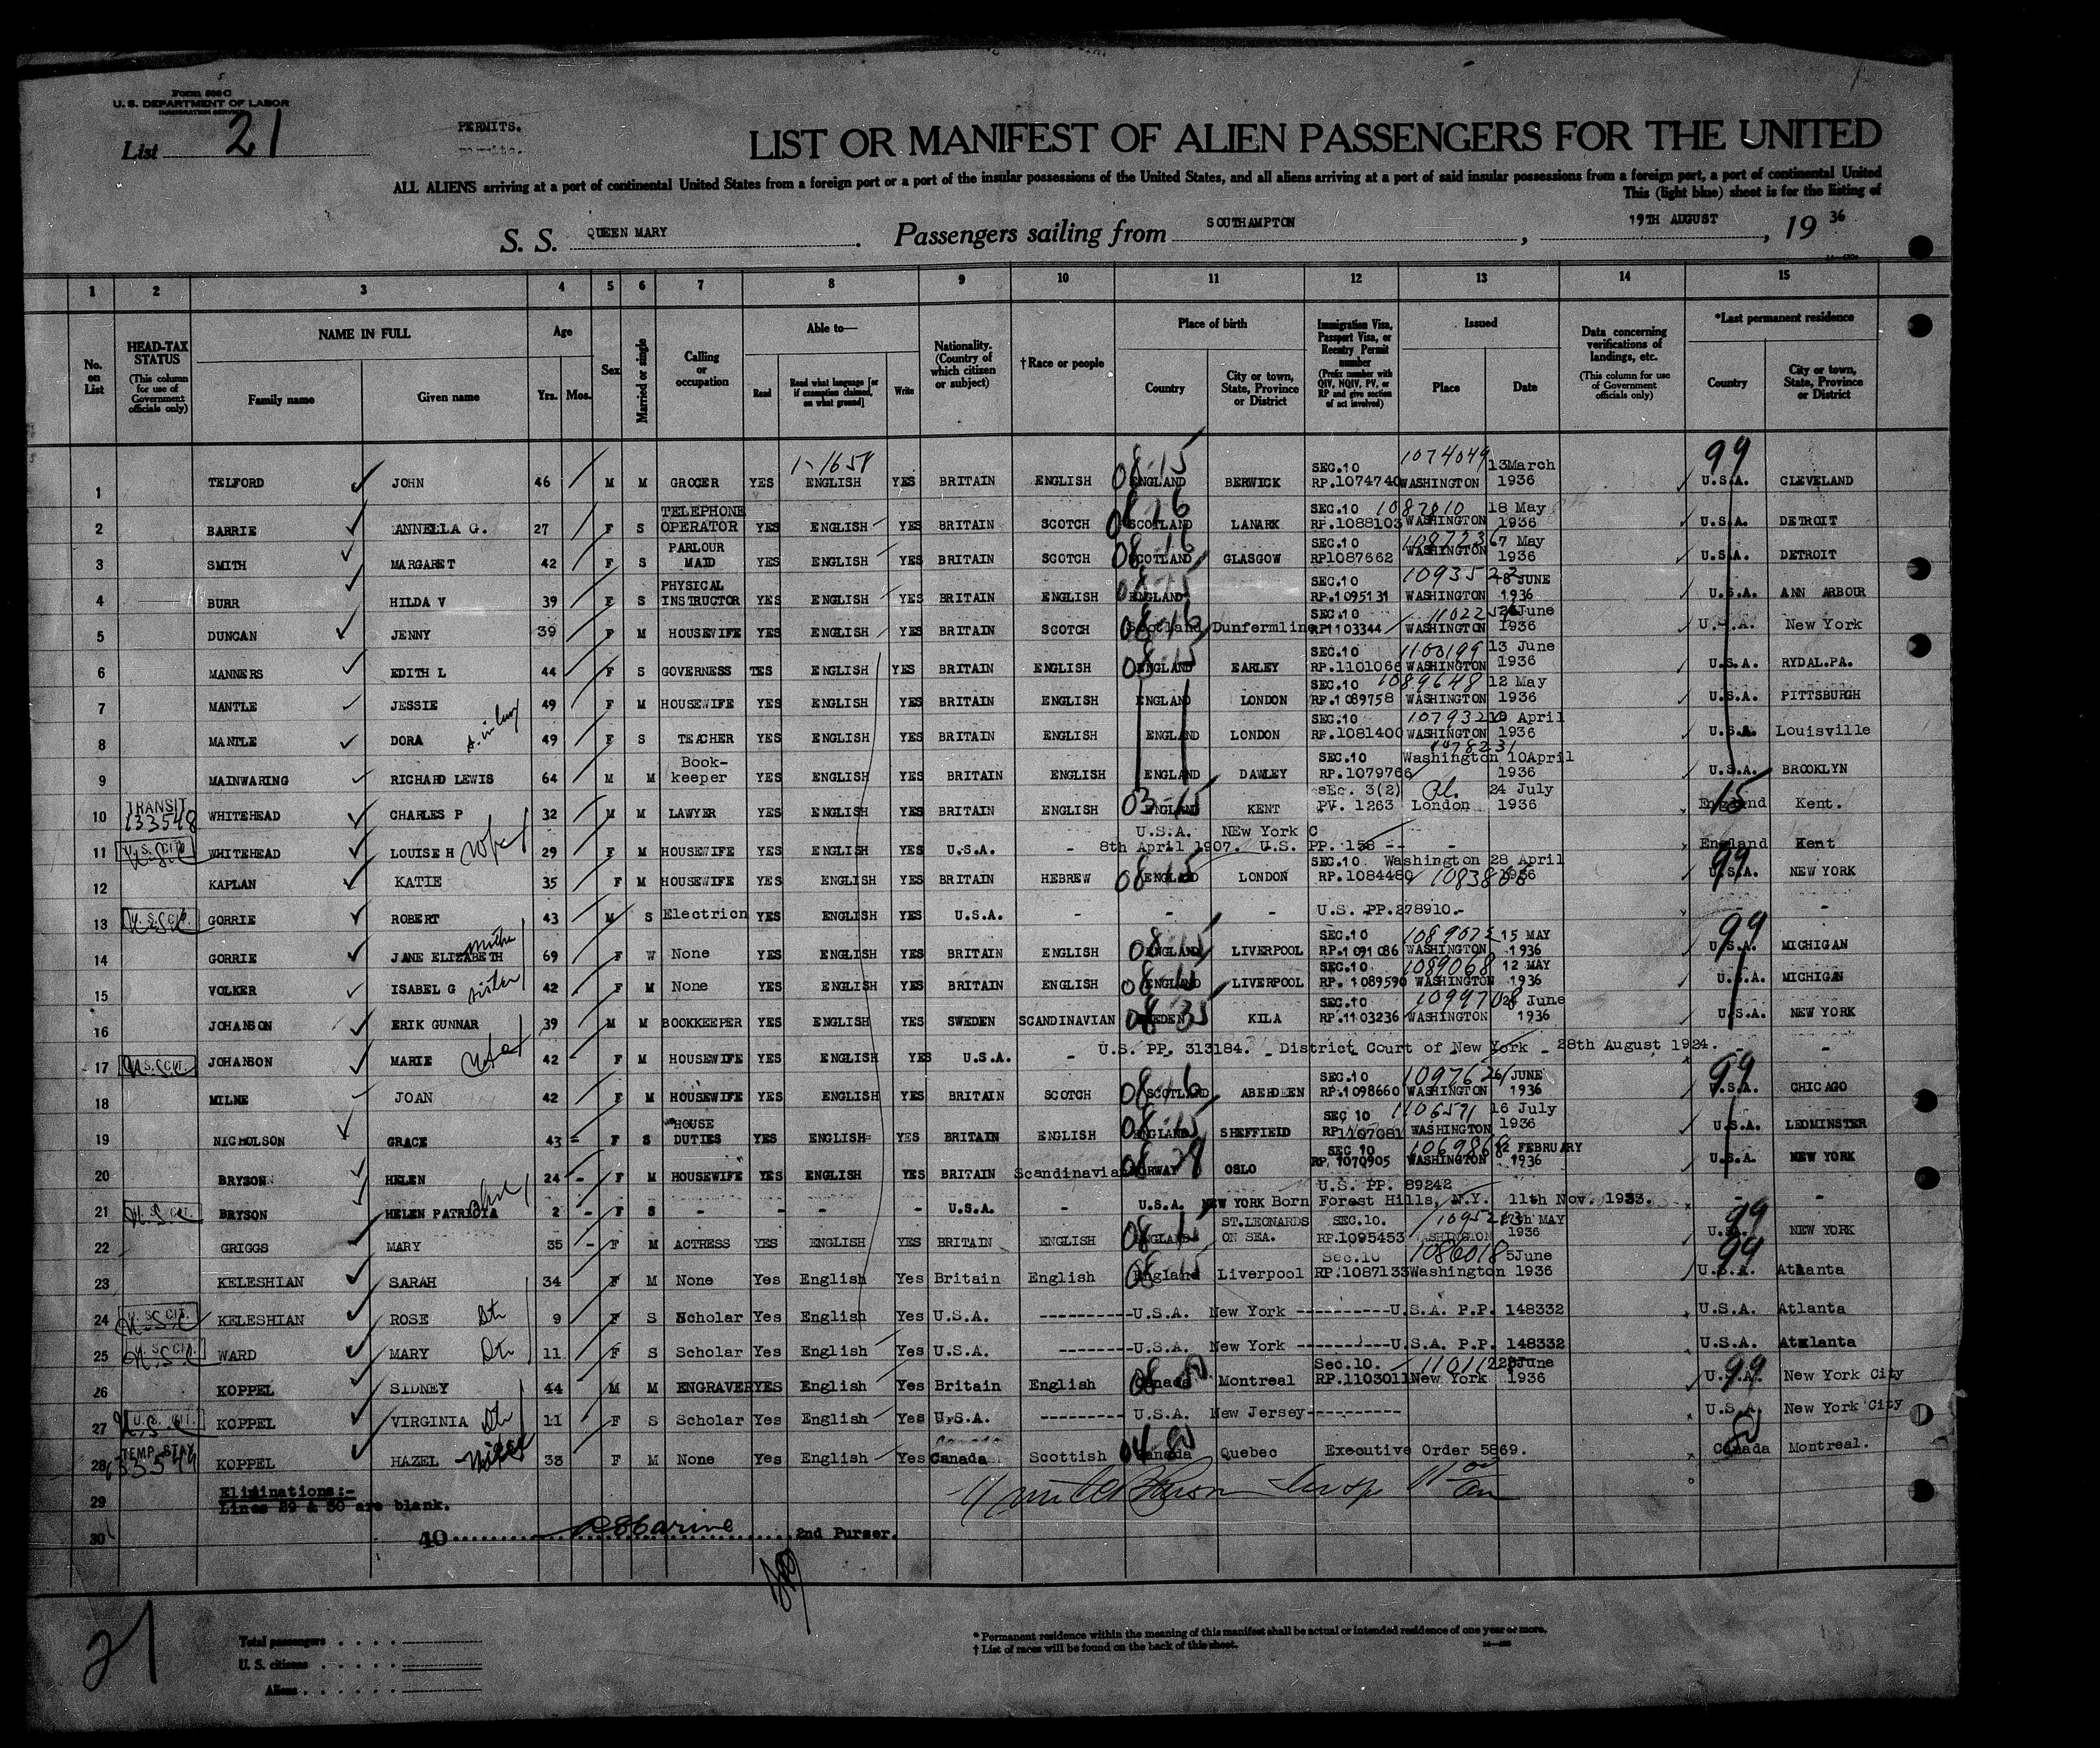 Form 500 C
U. S. DEPARTMENT OF LABOR
IMMIGRATION SERVICE
List 21
PERMITS.
LIST OR MANIFEST OF ALIEN PASSENGERS FOR THE UNITED
ALL ALIENS arriving at a port of continental United States from a foreign port or a port of the insular possessions of the United States, and all aliens arriving at a port of said insular possessions from a foreign port, a port of continental United
This (light blue) sheet is for the listing of
S. S. QUEEN MARY. Passengers sailing from SOUTHAMPTON, 19TH AUGUST, 19 36
1 2 3 4 5 6 7 8 9 10 11 12 13 14 15
No. on List
HEAD-TAX STATUS (This column for use of Government officials only)
NAME IN FULL Family name Given name
Age Yrs. Mos.
Sex
Married or single
Calling or occupation
Able to— Read Read what language [or if exemption claimed, on what ground] Write
Nationality. (Country of which citizen or subject)
†Race or people
Place of birth Country City or town, State, Province or District
Immigration Visa, Passport Visa, or Reentry Permit number (Prefix number with QIV, NQIV, PV, or RP and give section of act involved)
Issued Place Date
Data concerning verifications of landings, etc. (This column for use of Government officials only)
*Last permanent residence Country City or town, State, Province or District
1 TELFORD JOHN 46 M M GROCER YES 1-1658 ENGLISH YES BRITAIN ENGLISH 08-15 ENGLAND BERWICK SEC.10 RP.1074740 1074049 WASHINGTON 13March 1936 99 U.S.A. CLEVELAND
2 BARRIE ANNELLA G. 27 F S TELEPHONE OPERATOR YES ENGLISH YES BRITAIN SCOTCH 08-16 SCOTLAND LANARK SEC.10 RP.1088103 1087010 WASHINGTON 18 May 1936 U.S.A. DETROIT
3 SMITH MARGARET 42 F S PARLOUR MAID YES ENGLISH YES BRITAIN SCOTCH 08-16 SCOTLAND GLASGOW SEC.10 RP1087662 WASHINGTON 7 May 1936 U.S.A. DETROIT
4 BURR HILDA V 39 F S PHYSICAL INSTRUCTOR YES ENGLISH YES BRITAIN ENGLISH 08-15 ENGLAND SEC.10 RP.1095131 WASHINGTON JUNE 1936 U.S.A. ANN ARBOUR
5 DUNCAN JENNY 39 F M HOUSEWIFE YES ENGLISH YES BRITAIN SCOTCH 08-16 Scotland Dunfermline SEC.10 RP1103344 WASHINGTON June 1936 U.S.A. New York
6 MANNERS EDITH L 44 F S GOVERNESS YES ENGLISH YES BRITAIN ENGLISH 08-15 ENGLAND EARLEY SEC.10 RP.1101066 1100199 WASHINGTON 13 June 1936 U.S.A. RYDAL.PA.
7 MANTLE JESSIE 49 F M HOUSEWIFE YES ENGLISH YES BRITAIN ENGLISH ENGLAND LONDON SEC.10 RP.1089758 1089648 WASHINGTON 12 May 1936 U.S.A. PITTSBURGH
8 MANTLE DORA s. in law 49 F S TEACHER YES ENGLISH YES BRITAIN ENGLISH ENGLAND LONDON SEC.10 RP.1081400 WASHINGTON April 1936 U.S.A. Louisville
9 MAINWARING RICHARD LEWIS 64 M M Book-keeper YES ENGLISH YES BRITAIN ENGLISH ENGLAND DAWLEY SEC.10 RP.1079766 1078231 Washington 10April 1936 U.S.A. BROOKLYN
10 TRANSIT 133548 WHITEHEAD CHARLES P 32 M M LAWYER YES ENGLISH YES BRITAIN ENGLISH 03-15 ENGLAND KENT sEc. 3(2) PV. 1263 London 24 July 1936 15 England Kent.
11 U.S. CIT. WHITEHEAD LOUISE H wife 29 F M HOUSEWIFE YES ENGLISH YES U.S.A. - U.S.A. NEw York C 8th April 1907. U.S. PP. 158 -- - England Kent
12 KAPLAN KATIE 35 F M HOUSEWIFE YES ENGLISH YES BRITAIN HEBREW 08-15 ENGLAND LONDON SEC.10 RP.1084480 Washington 28 April 1936 99 U.S.A. NEW YORK
13 U.S. CIT. GORRIE ROBERT 43 M S Electricn YES ENGLISH YES U.S.A. - - - U.S. PP.278910.- - -
14 GORRIE JANE ELIZABETH mother 69 F W None YES ENGLISH YES BRITAIN ENGLISH 08-15 ENGLAND LIVERPOOL SEC.10 RP.1091086 WASHINGTON 15 MAY 1936 99 U.S.A. MICHIGAN
15 VOLKER ISABEL G sister 42 F M None YES ENGLISH YES BRITAIN ENGLISH 08-15 ENGLAND LIVERPOOL SEC.10 RP. 1089590 1089068 WASHINGTON 12 MAY 1936 U.S.A. MICHIGAN
16 JOHANSON ERIK GUNNAR 39 M M BOOKKEEPER YES ENGLISH YES SWEDEN SCANDINAVIAN 08-35 SWEDEN KILA SEC.10 RP.1103236 WASHINGTON June 1936 U.S.A. NEW YORK
17 U.S. CIT. JOHANSON MARIE wife 42 F M HOUSEWIFE YES ENGLISH YES U.S.A. - U.S. PP. 313184. - District Court of New York - 28th August 1924. - -
18 MILNE JOAN 42 F M HOUSEWIFE YES ENGLISH YES BRITAIN SCOTCH 08-16 SCOTLAND ABERDEEN SEC.10 RP.1098660 WASHINGTON JUNE 1936 99 U.S.A. CHICAGO
19 NICHOLSON GRACE 43 F S HOUSE DUTIES YES ENGLISH YES BRITAIN ENGLISH 08-15 ENGLAND SHEFFIELD SEC 10 RP1107081 1106571 WASHINGTON 16 July 1936 U.S.A. LEOMINSTER
20 BRYSON HELEN 24 - F M HOUSEWIFE YES ENGLISH YES BRITAIN Scandinavian 08-29 NORWAY OSLO SEC 10 RP. 1070905 WASHINGTON FEBRUARY 1936 U.S.A. NEW YORK
21 U.S. CIT. BRYSON HELEN PATRICIA 2 - F S - - - - U.S.A. - U.S.A. NEW YORK Born Forest Hills, N.Y. 11th Nov. 1933. U.S. PP. 89242 - -
22 GRIGGS MARY 35 - F M ACTRESS YES ENGLISH YES BRITAIN ENGLISH 08-15 ENGLAND ST.LEONARDS ON SEA. SEC.10. RP.1095453 WASHINGTON MAY 1936 99 U.S.A. NEW YORK
23 KELESHIAN SARAH 34 F M None Yes English Yes Britain English 08-15 England Liverpool Sec.10 RP.1087133 1086018 Washington 5June 1936 99 U.S.A. Atlanta
24 U.S. CIT. KELESHIAN ROSE Dtr 9 F S Scholar Yes English Yes U.S.A. ----------U.S.A. New York ----------U.S.A. P.P. 148332 U.S.A. Atlanta
25 U.S. CIT. WARD MARY Dtr 11 F S Scholar Yes English Yes U.S.A. --------U.S.A. New York ----------U.S.A. P.P. 148332 U.S.A. Atlanta
26 KOPPEL SIDNEY 44 M M ENGRAVER YES English Yes Britain English 08-80 Canada Montreal Sec.10. RP.1103011 New York June 1936 99 U.S.A. New York City
27 U.S. CIT. KOPPEL VIRGINIA Dtr 11 F S Scholar Yes English Yes U.S.A. --------- U.S.A. New Jersey---------- U.S.A. New York City
28 TEMP. STAY KOPPEL HAZEL wife 33 F M None Yes English Yes Canada Scottish 04-80 Canada Quebec Executive Order 5869. 80 Canada Montreal.
29 Eliminations:-
Lines 29 & 30 are blank.
30 40 2nd Purser.
21
Total passengers
U. S. citizens
Aliens
* Permanent residence within the meaning of this manifest shall be actual or intended residence of one year or more.
† List of races will be found on the back of this sheet.